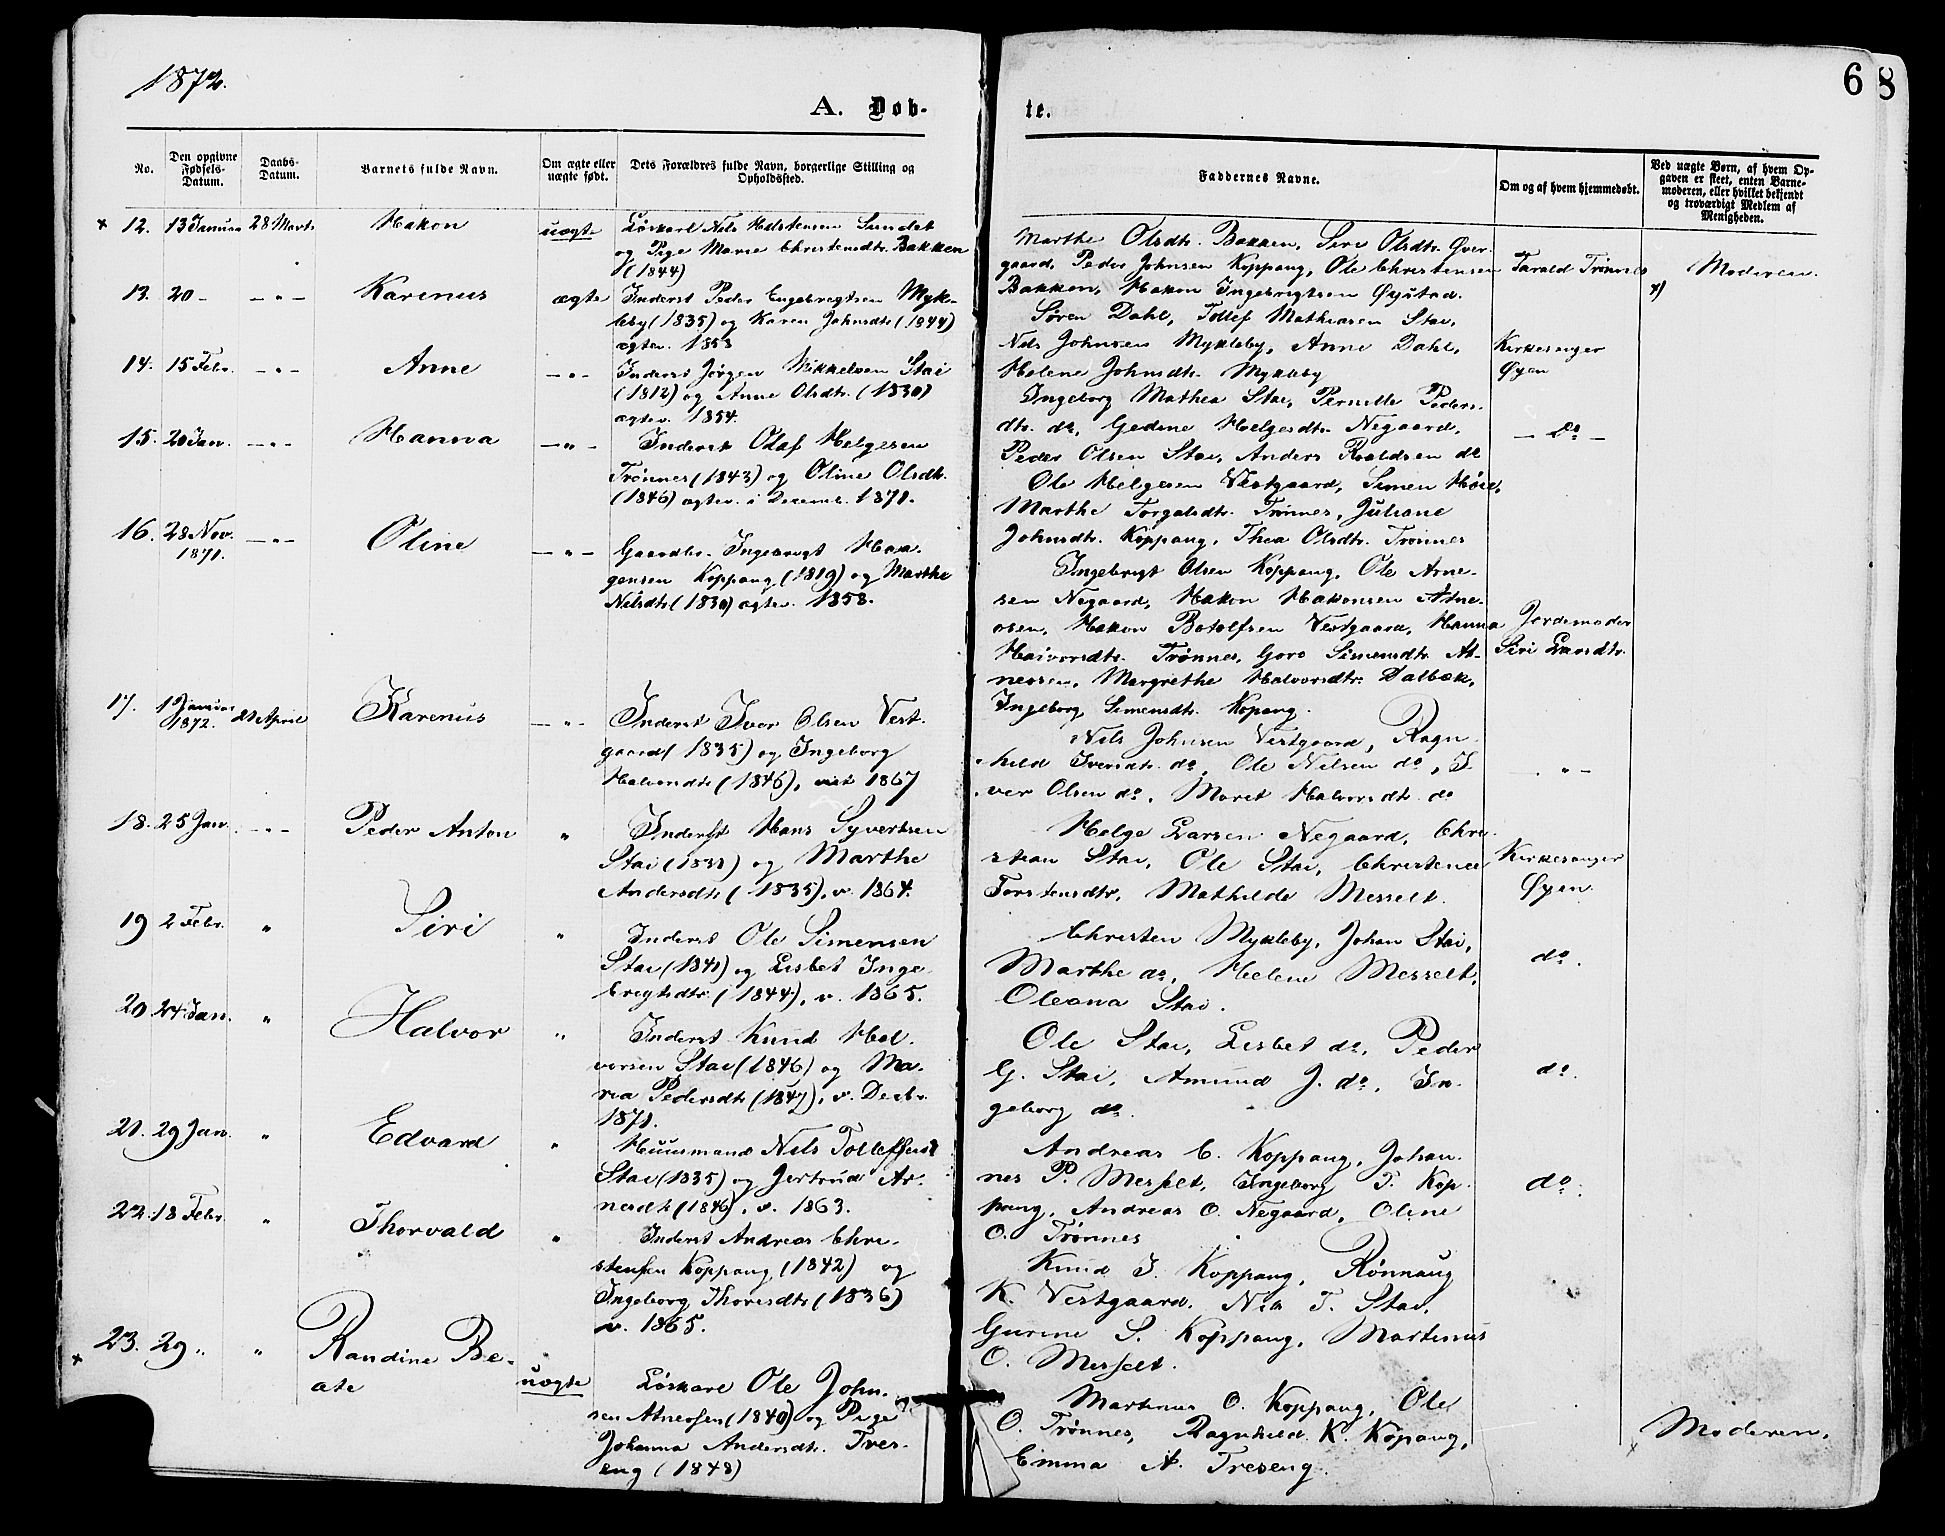 1872.
6
8
A. Døb-
te.
No.
Den opgivne
Fødsels-
Datum.
Daabs-
Datum.
Barnets fulde Navn.
Om ægte eller
uægte født.
Dets Forældres fulde Navn, borgerlige Stilling og
Opholdssted.
Faddernes Navne.
Om og af hvem hjemmedøbt.
Ved uægte Børn, af hvem Op-
gaven er skeet, enten Barne-
moderen, eller hvilket bekjendt
og troværdigt Medlem af
Menigheden.
x 12. 13 Januar 28 Marts Hakon uægte
Løskarl Nils Halstensen Sundet
og Pige Marie Christensdtr. Bakken
(1844)
Marthe Olsdtr. Bakken, Siri Olsdtr. Øver-
gaard, Peder Johnsen Koppang, Ole Christensen
Bakken, Hakon Ingebrigtsen Øystad.
Tarald Trønnes
x) Moderen.
13. 20 - — „ — Karenus ægte
Inderst Peder Engebregtsen Myk-
leby (1835) og Karen Johnsdtr (1844)
ægtev. 1853
Søren Dahl, Tollef Mathiasen Stai,
Nils Johnsen Mykleby, Anne Dahl,
Helene Johnsdtr. Mykleby
Kirkesanger
Øyen
14. 15 Febr. — „ — Anne — „ —
Inderst Jørgen Mikkelsen Stai
(1812) og Anne Olsdtr. (1830)
ægtev. 1854.
Ingeborg Mathea Stai, Pernille Peders-
dtr. do, Gedine Helgesdtr. Negaard,
Peder Olsen Stai, Anders Roaldsen do
— Do —
15. 20 Jan. — „ — Hanna — „ —
Inderst Olaf Helgesen
Trønnes (1843) og Oline Olsdtr.
(1846) ægtev. i Decemb. 1871.
Ole Helgesen Vestgaard, Simen Hoel,
Marthe Torgalsdtr. Trønnes, Juliane
Johnsdtr. Koppang, Thea Olsdtr. Trønnes
16. 28 Nov.
1871. — „ — Oline — „ —
Gaardbr. Ingebrigt Haa-
gensen Koppang (1819) og Marthe
Nilsdtr (1830) ægtev. 1858.
Ingebrigt Olsen Koppang, Ole Arne-
sen Negaard, Hakon Hakonsen Atne-
osen, Hakon Botolfsen Vestgaard, Hanna
Halvorsdtr. Trønnes, Goro Simensdtr. At-
neosen, Margrethe Halvorsdtr. Dalbæk,
Ingeborg Simensdtr. Kopang.
Jordemoder
Siri Larsdtr.
17. 1 Januar
1872. 21 April Karenus — „ —
Inderst Iver Olsen Vest-
gaard (1835) og Ingeborg
Halvorsdtr (1846), viet 1867
Nils Johnsen Vestgaard, Ragn-
hild Iversdtr. do, Ole Nilsen do, I-
ver Olsen do, Maret Halvorsdtr. do
— „ —
18. 25 Jan. — „ — Peder Anton „
Inderst Hans Syvertsen
Stai (1831) og Marthe
Andersdtr (1835), v. 1864.
Helge Larsen Negaard, Chri-
stian Stai, Ole Stai, Christence
Torstensdtr, Mathilde Messelt.
Kirkesanger
Øyen.
19 2 Febr. „ Siri „
Inderst Ole Simensen
Stai (1841) og Lisbet Inge-
brigtsdtr. (1844), v. 1865.
Christen Mykleby, Johan Stai,
Marthe do, Helene Messelt,
Oleana Stai.
do.
20. 24 Jan. „ Halvor „
Inderst Knud Hal-
vorsen Stai (1846) og Ma-
ria Pedersdtr (1847), v. Decbr.
1871.
Ole Stai, Lisbet do, Peder
G. Stai, Amund J. do, In-
geborg do.
do.
21. 29 Jan. „ Edvard „
Huusmand Nils Tollefsen
Stai (1835) og Jertrud Ar-
nesdtr (1846), v. 1863.
Andreas C. Koppang, Johan-
nes P. Messelt, Ingeborg T. Kop-
pang, Andreas O. Negaard, Oline
O. Trønnes
do.
22. 18 Febr. „ Thorvald „
Inderst Andreas Chri-
stensen Koppang (1842) og
Ingeborg Thoresdtr (1836)
v. 1865.
Knud I. Koppang, Rønnaug
K. Vestgaard, Nils T. Stai,
Gurine S. Koppang, Martinus
O. Messelt.
x 23. 29 „ „ Randine Be-
ate uægte
Løskarl Ole John-
sen Atneosen (1840) og Pige
Johanna Andersdtr. Tres-
eng (1848)
Martinus O. Koppang, Ole
O. Trønnes, Ragnhild K. Kopang,
Emma A. Treseng.
x Moderen.